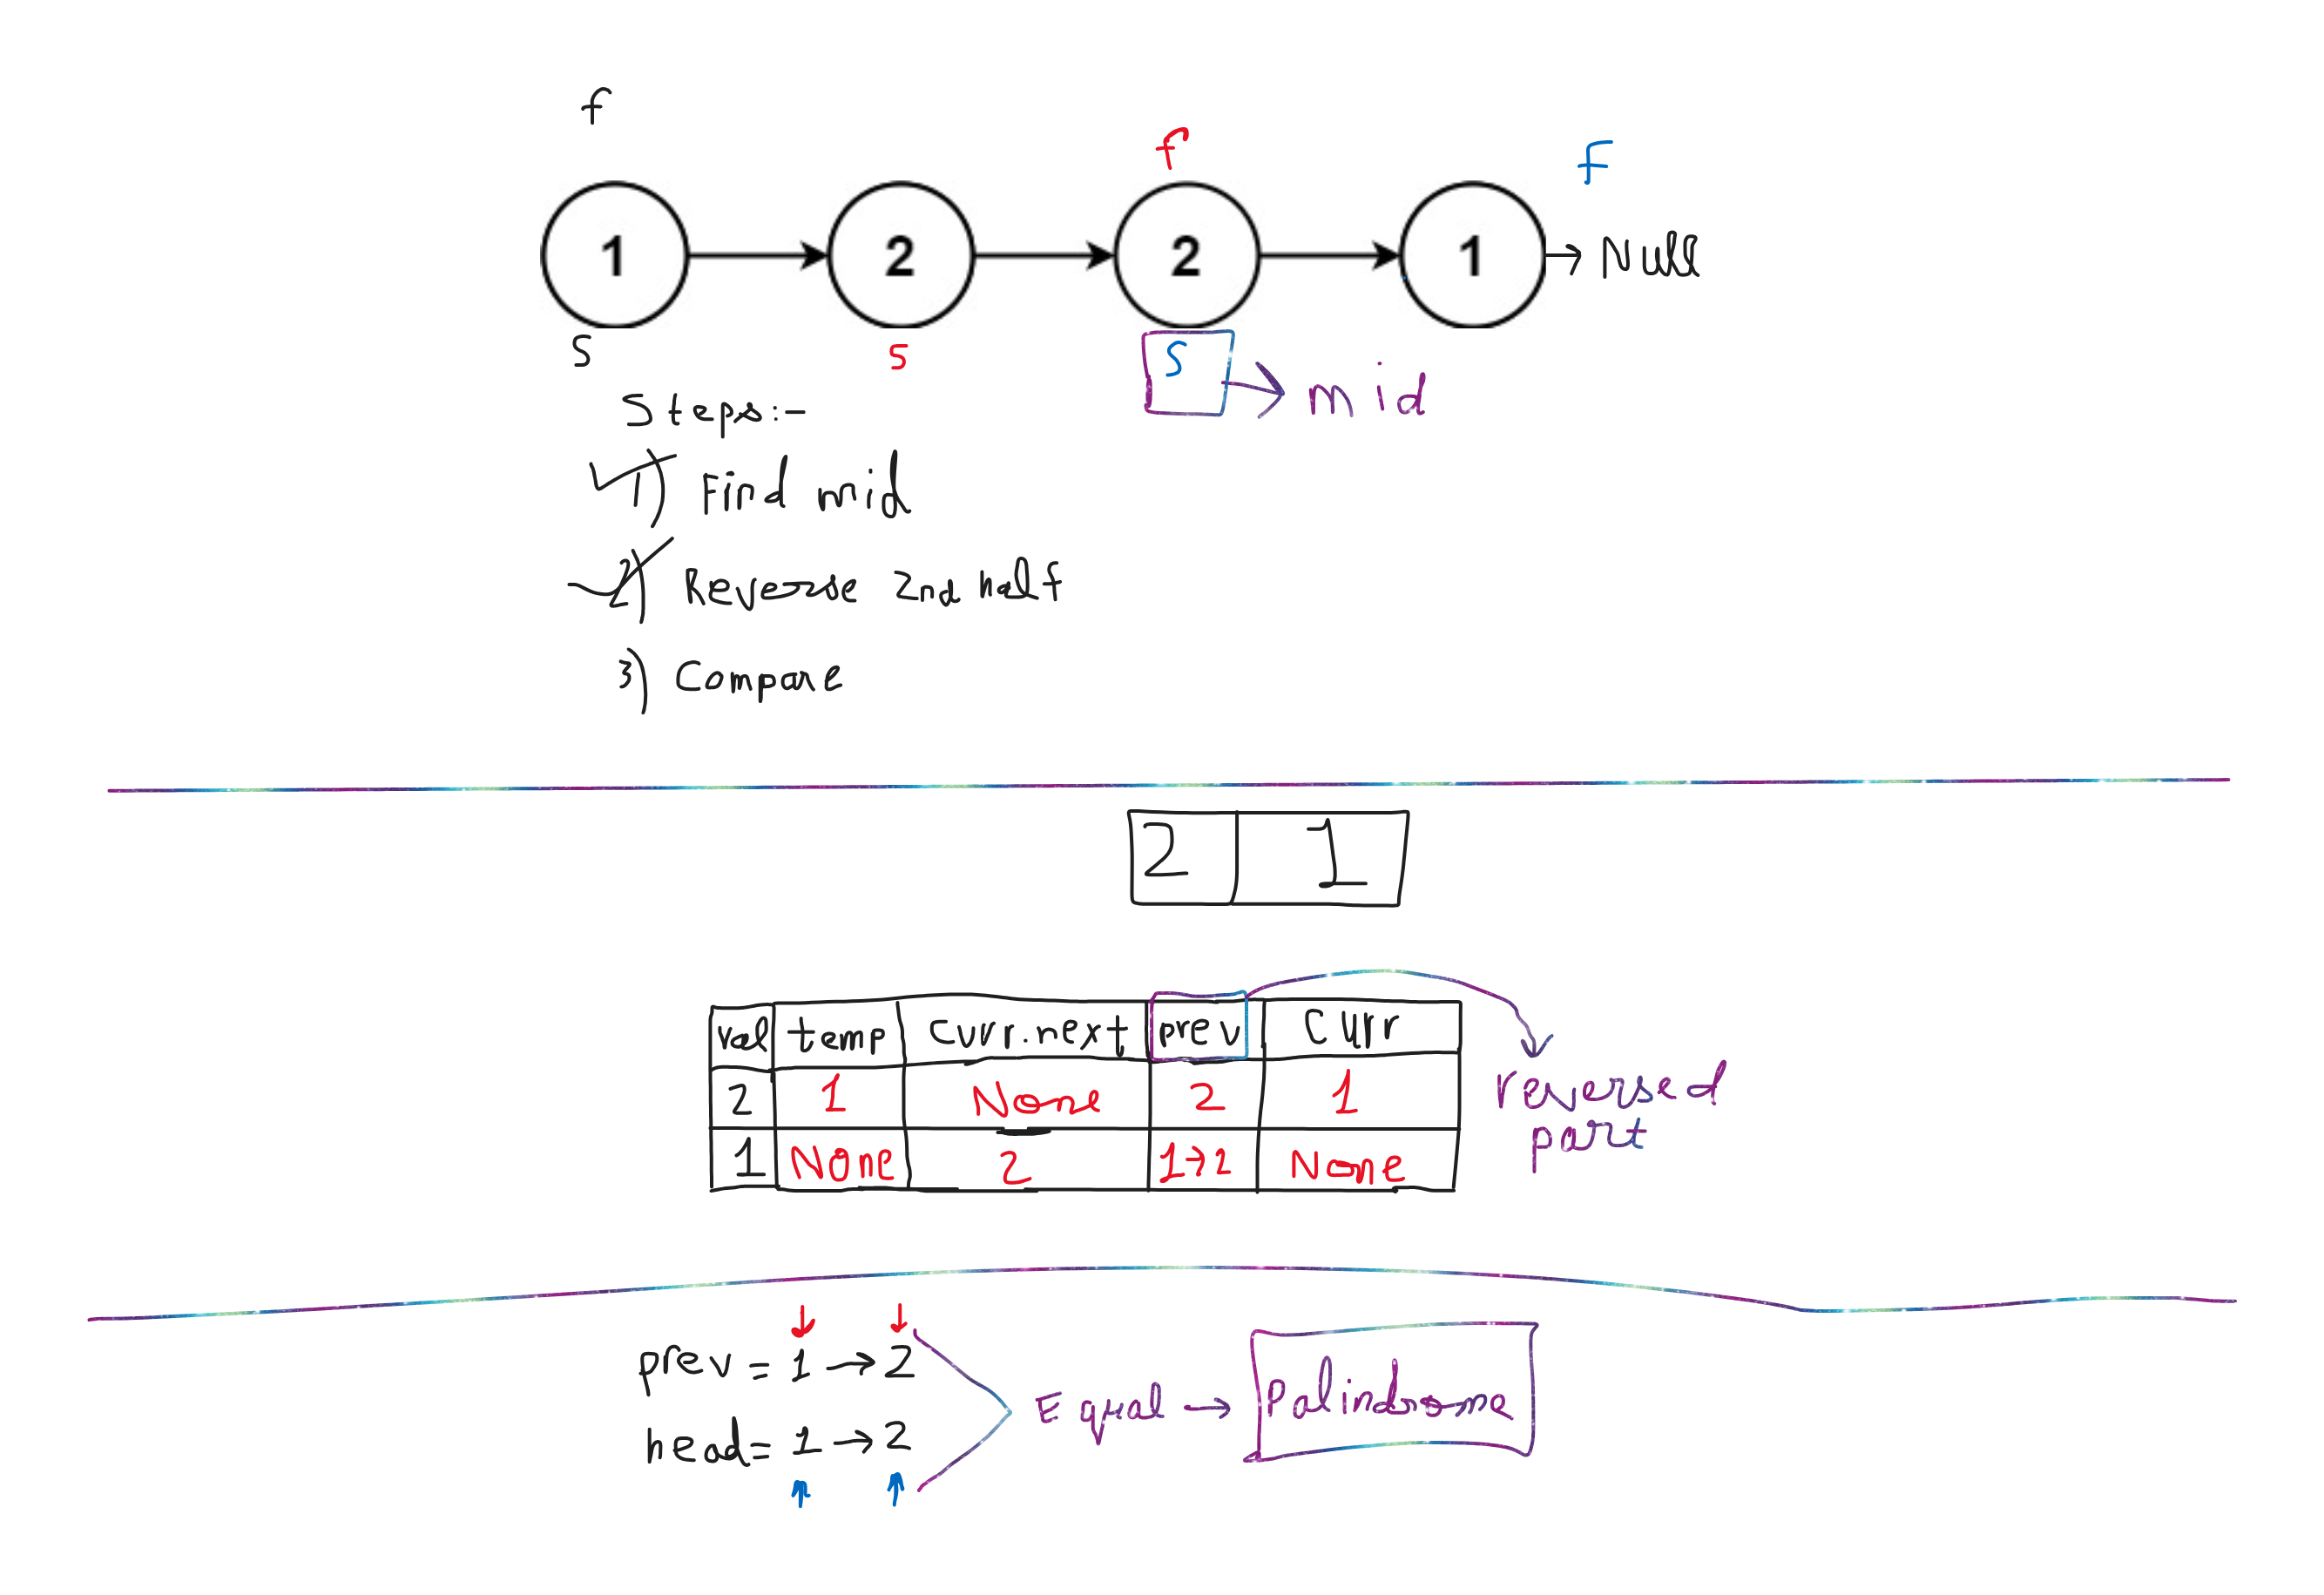 f
f
f
1 2 2 1 → Null
s
s
s → mid
Steps:-
1) Find mid
2) Reverse 2nd half
3) Compare
2 1
val temp curr.next prev curr
2 1 None 2 1
1 None 2 1→2 None
reversed
part
prev = 1 → 2
head = 1 → 2
Equal → Palindrome